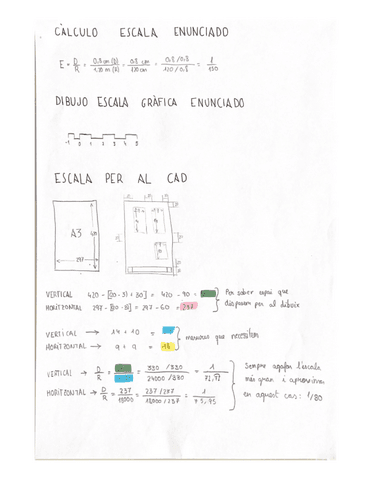 CÀLCULO ESCALA ENUNCIADO
E = D/R = 0.8 cm (D)/1,20 m (R) = 0.8 cm/120 cm = 0.8/0.8/120/0.8 = 1/150
DIBUJO ESCALA GRÀFICA ENUNCIADO
-1 0 1 2 3 4 5
ESCALA PER AL CAD
A3
420
297
VERTICAL 420 - [(20·3) + 30] = 420 - 90 =
HORITZONTAL 297 - [20·3] = 297 - 60 = 237
Per saber espai que
disposem per al dibuix
VERTICAL → 14 + 10 =
HORITZONTAL → 9 + 9 = 18
mesures que necesitem
VERTICAL → D/R = = 330/330/24000/330 = 1/72,72
HORITZONTAL → D/R = 237/18000 = 237/237/18000/237 = 1/75,95
Sempre agafem l'escala
més gran i aproximem
en aquest cas: 1/80